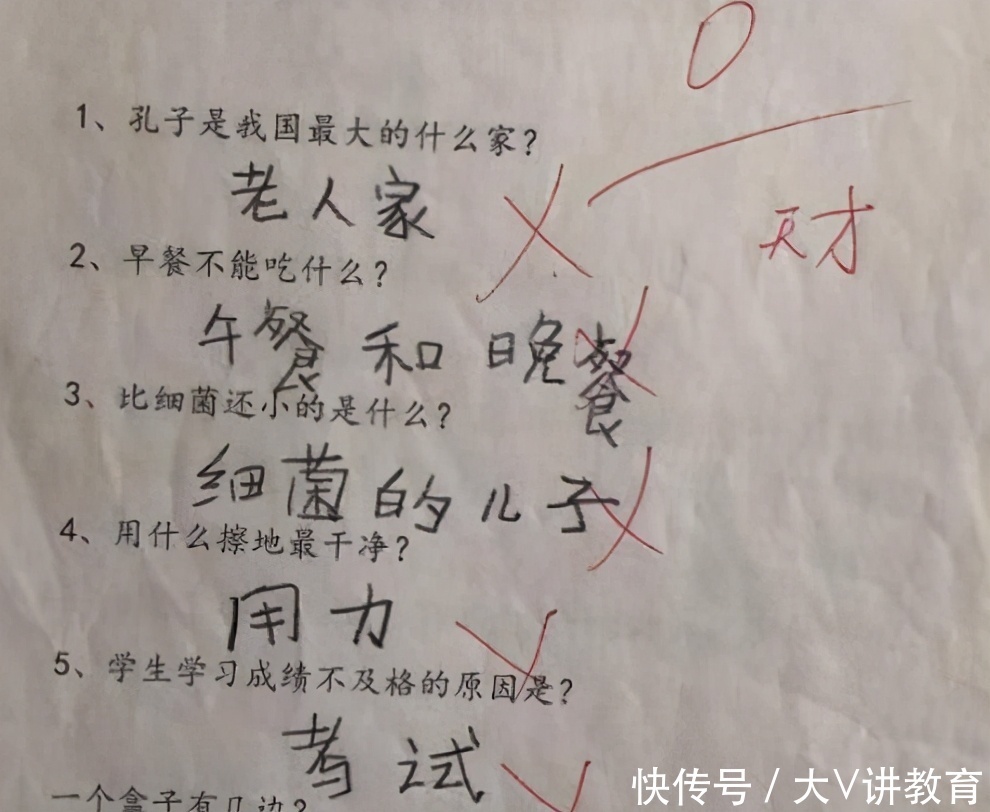 0
1、孔子是我国最大的什么家?
老人家
天才
2、早餐不能吃什么?
午餐 和 晚餐
3、比细菌还小的是什么?
细菌的儿子
4、用什么擦地最干净?
用力
5、学生学习成绩不及格的原因是?
考试
一个盒子有几边?
快传号 / 大V讲教育